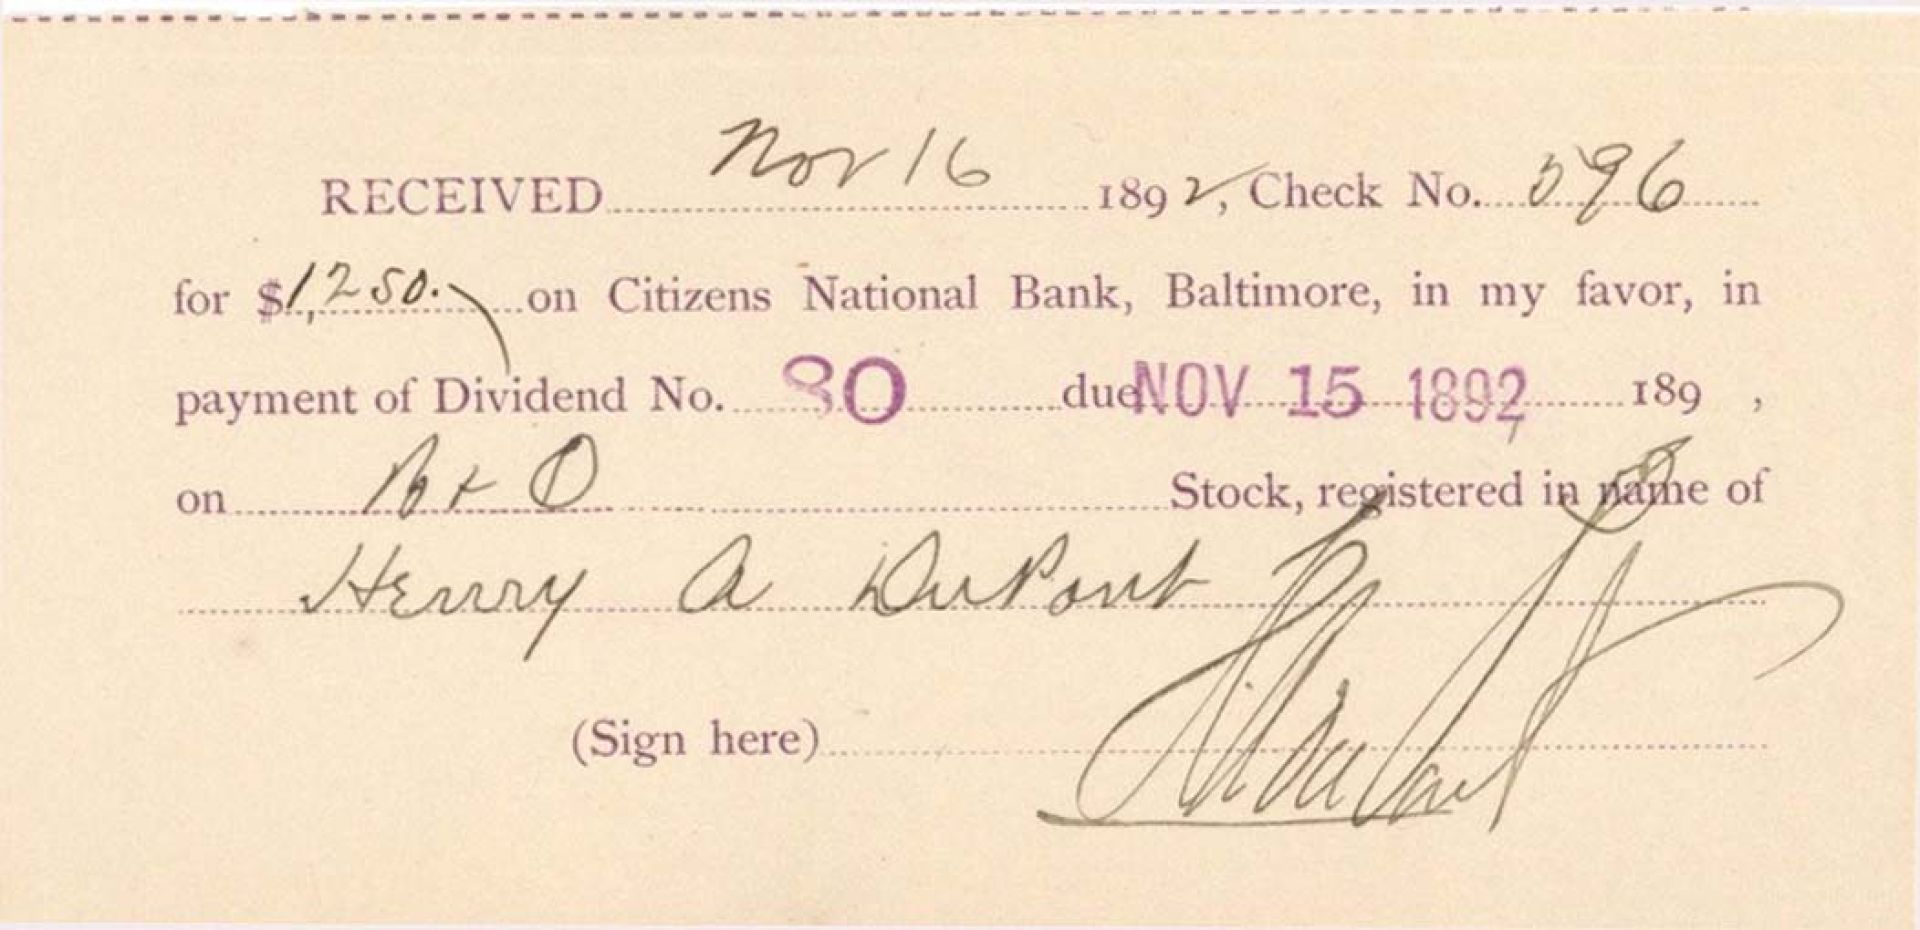 RECEIVED Nov 16 1892, Check No. 596
for $1,250. on Citizens National Bank, Baltimore, in my favor, in
payment of Dividend No. 80 due NOV 15 1892 189 ,
on B + O Stock, registered in name of
Henry A DuPont
(Sign here)